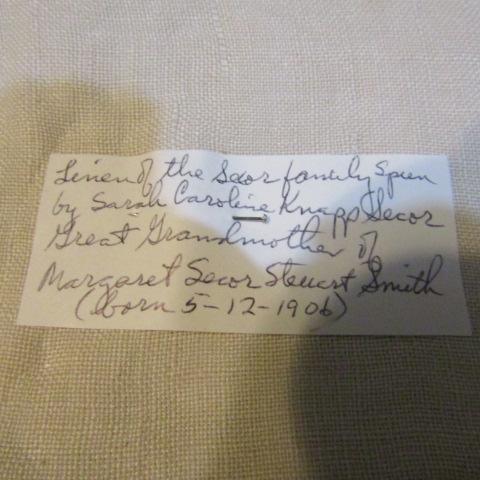 Linen of the Secor family Spun
by Sarah Caroline Knapp Secor
Great Grandmother of
Margaret Secor Steuart Smith
(born 5-12-1906)